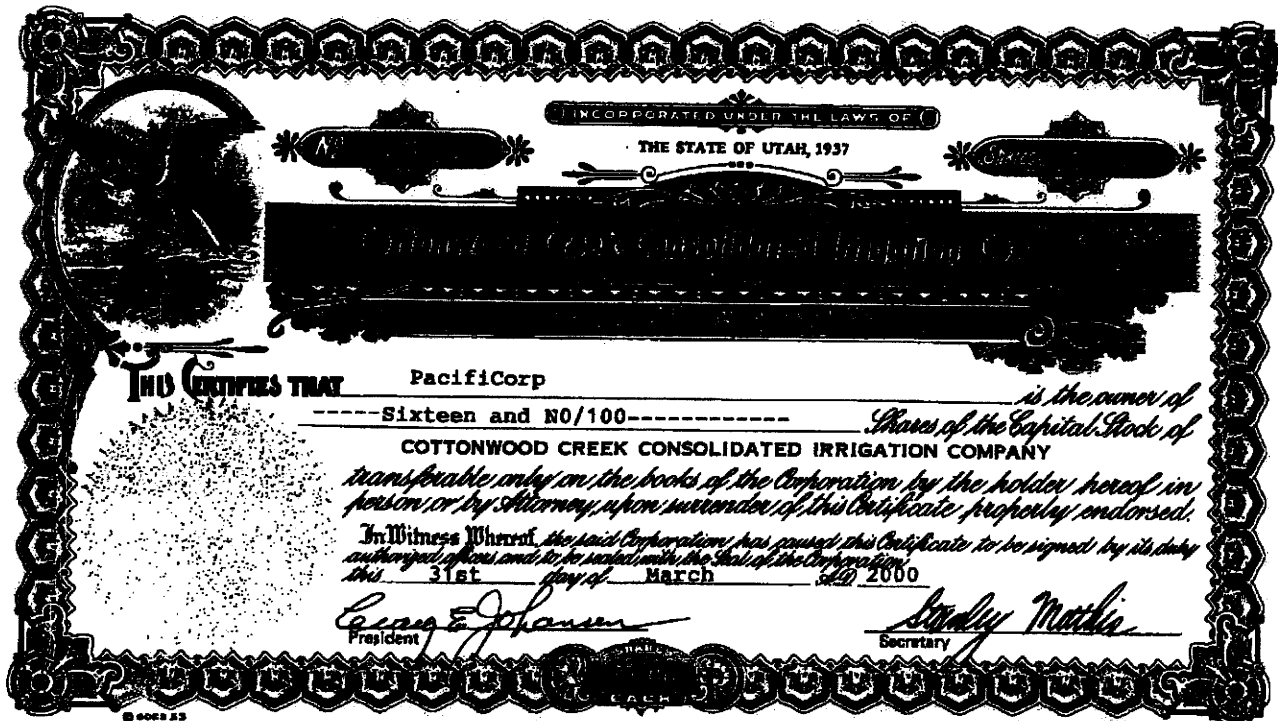 INCORPORATED UNDER THE LAWS OF
THE STATE OF UTAH, 1937
No
Shares
Cottonwood Creek Consolidated Irrigation Co.
THIS CERTIFIES THAT PacifiCorp is the owner of
-----Sixteen and N0/100------------ Shares of the Capital Stock of
COTTONWOOD CREEK CONSOLIDATED IRRIGATION COMPANY
transferable only on the books of the Corporation by the holder hereof in
person or by Attorney upon surrender of this Certificate properly endorsed.
In Witness Whereof, the said Corporation has caused this Certificate to be signed by its duly
authorized officers and to be sealed with the Seal of the Corporation
this 31st day of March A.D. 2000
Craig E Johansen
Stanley Mathis
President
Secretary
EACH